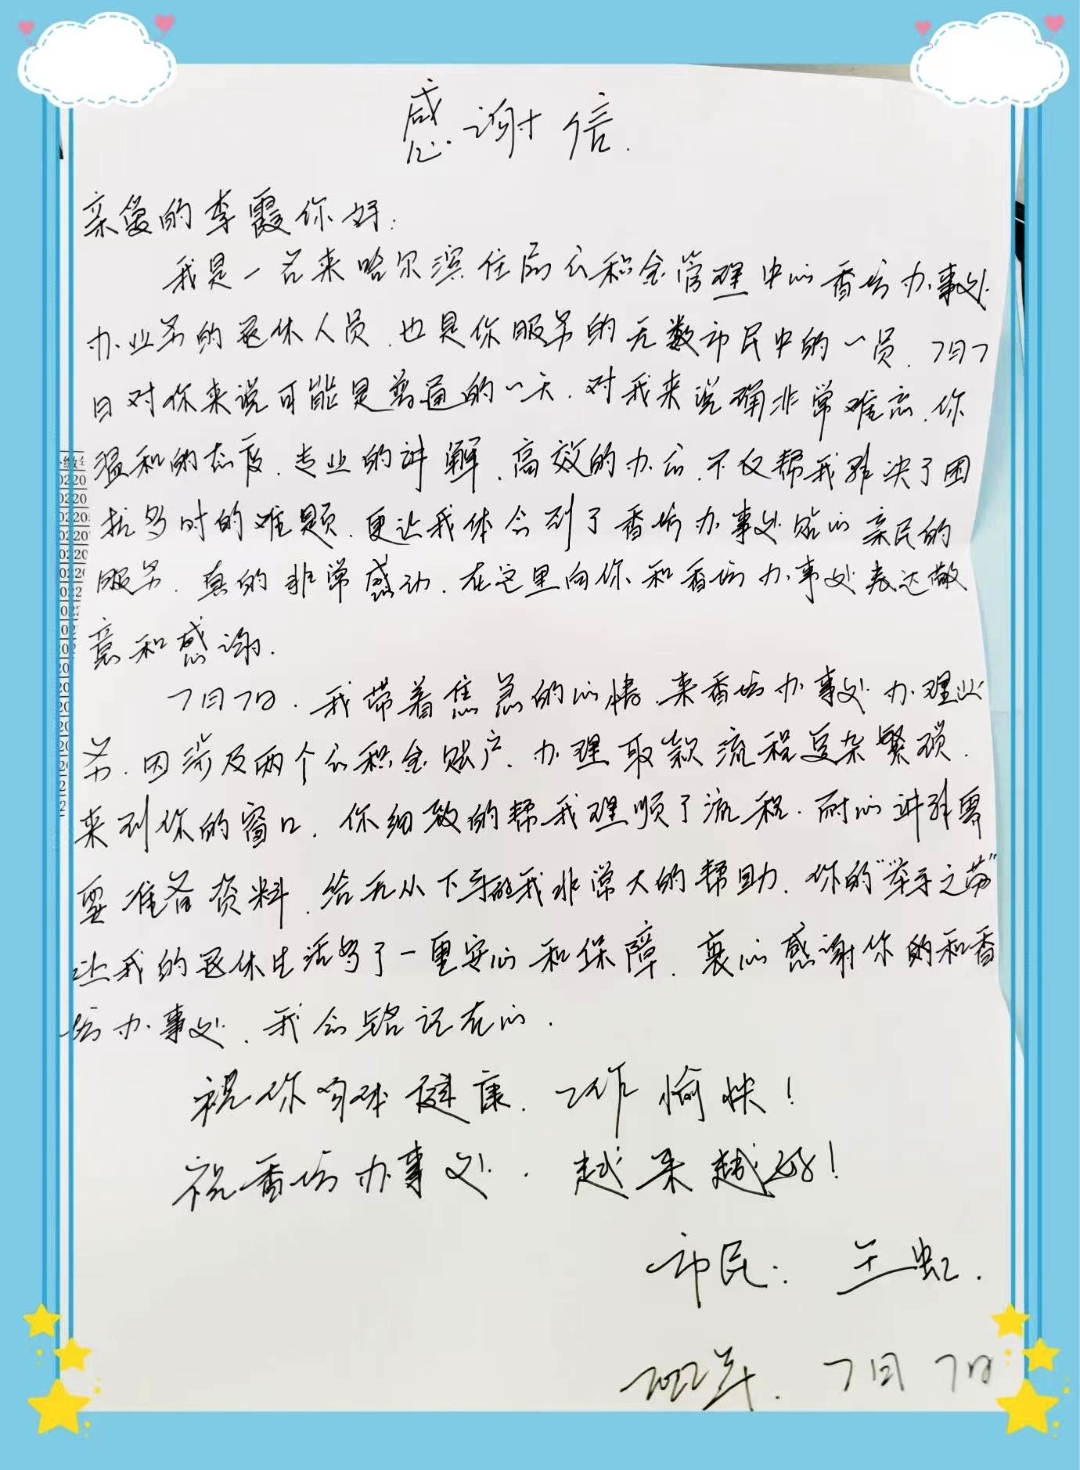 感谢信.
亲爱的李霞你好:
我是一名来哈尔滨住房公积金管理中心香坊办事处
办业务的退休人员,也是你服务的无数市民中的一员,7月7
日对你来说可能是普通的一天,对我来说确非常难忘,你
温和的态度,专业的讲解,高效的办公,不仅帮我解决了困
扰多时的难题,更让我体会到了香坊办事处贴心亲民的
服务,真的非常感动,在这里向你和香坊办事处表达敬
意和感谢.
7月7日,我带着焦急的心情,来香坊办事处办理业
务,因涉及两个公积金账户,办理取款流程复杂繁琐,
来到你的窗口,你细致的帮我理顺了流程,耐心讲解需
要准备资料,给无从下手的我非常大的帮助,你的“举手之劳”
让我的退休生活多了一重安心和保障,衷心感谢你的和香
坊办事处,我会铭记在心.
祝你身体健康,工作愉快!
祝香坊办事处,越来越好!
市民:王虹.
2022年,7月7日